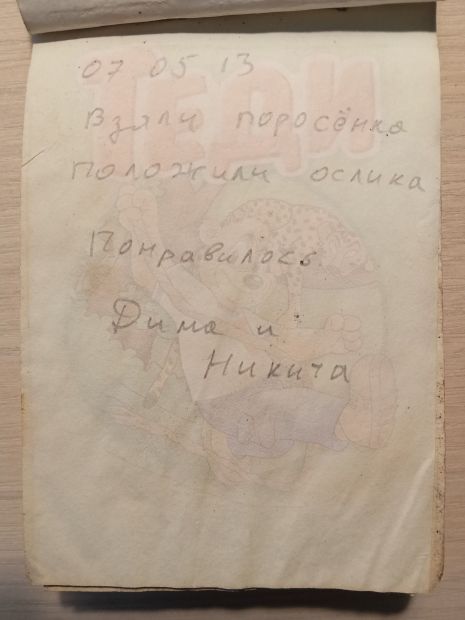 07 05 13
Взяли поросёнка
положили ослика
Понравилось.
Дима и
Никита
ТЕДИ